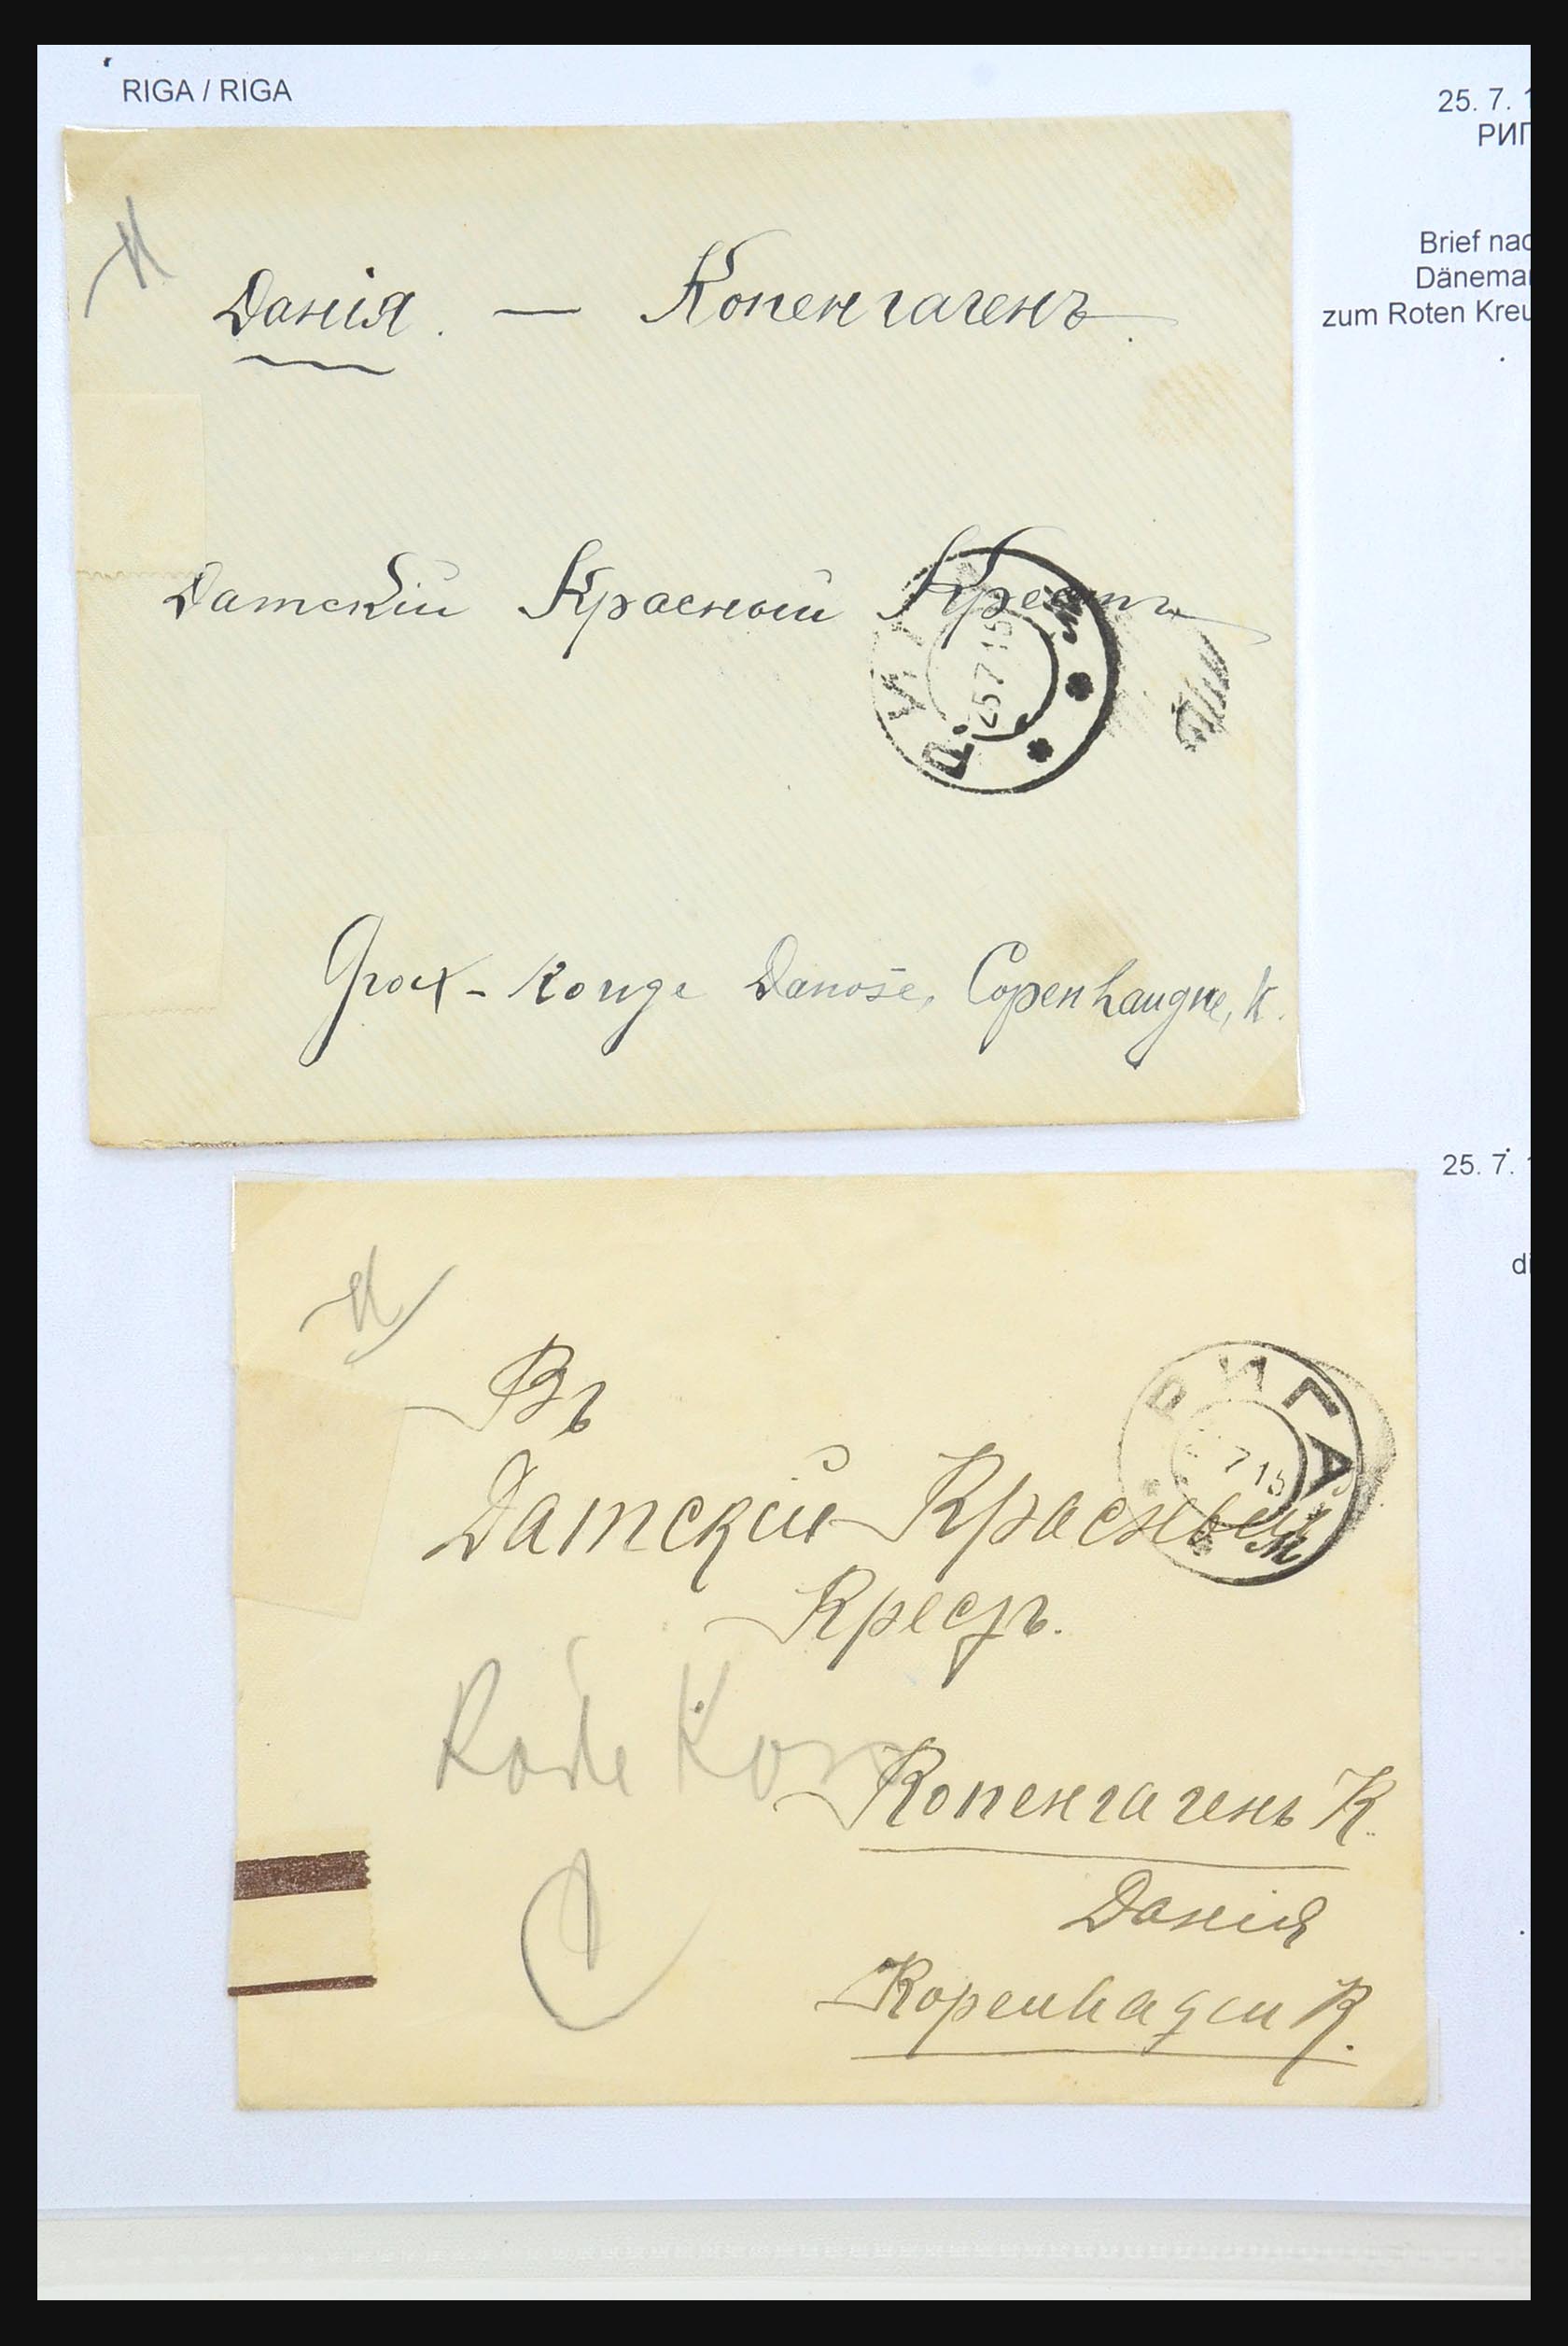 RIGA / RIGA
25. 7.
РИГ
Brief nac
Dänemar
zum Roten Kreu
Данія. — Копенгагенъ.
Датскій Красный Крестъ
РИГ
25 7 15
Groix - Rouge Danoise, Copenhaugne, K.
25. 7.
di
РИГА
7 15
Въ
Датскій Красный
Крестъ.
Rode Kors
Копенгагенъ K.
Данія
Kopenhagen K.